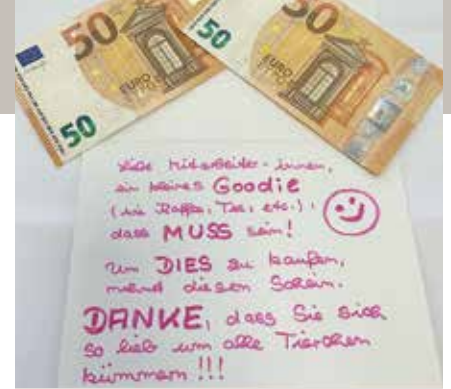 50 EURO
50
50 EURO
50
Liebe Mitarbeiter-innen,
ein kleines Goodie
(wie Kaffee, Tee, etc.),
dass MUSS sein!
Um DIES zu kaufen,
nehmt diesen Schein.
DANKE, dass Sie sich
so lieb um alle Tierchen
kümmern!!!